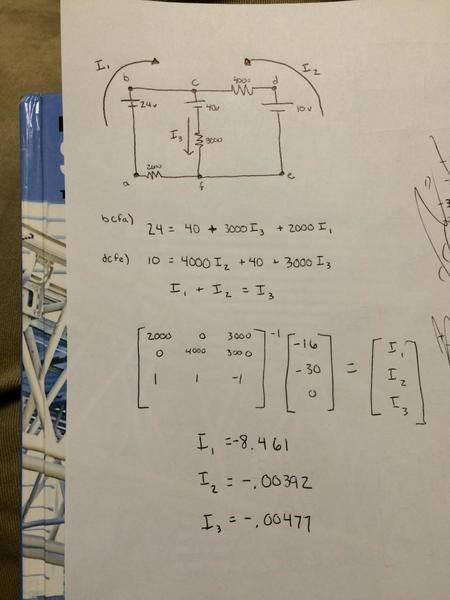 I₁
I₂
b
c
4000
d
24v
40v
10v
I₃
3000
a
2000
f
e
bcfa) 24 = 40 + 3000I₃ + 2000I₁
dcfe) 10 = 4000I₂ + 40 + 3000I₃
I₁ + I₂ = I₃
[2000 0 3000
0 4000 3000
1 1 -1]⁻¹ [-16 -30 0] = [I₁ I₂ I₃]
I₁ = -8.461
I₂ = -.00392
I₃ = -.00477